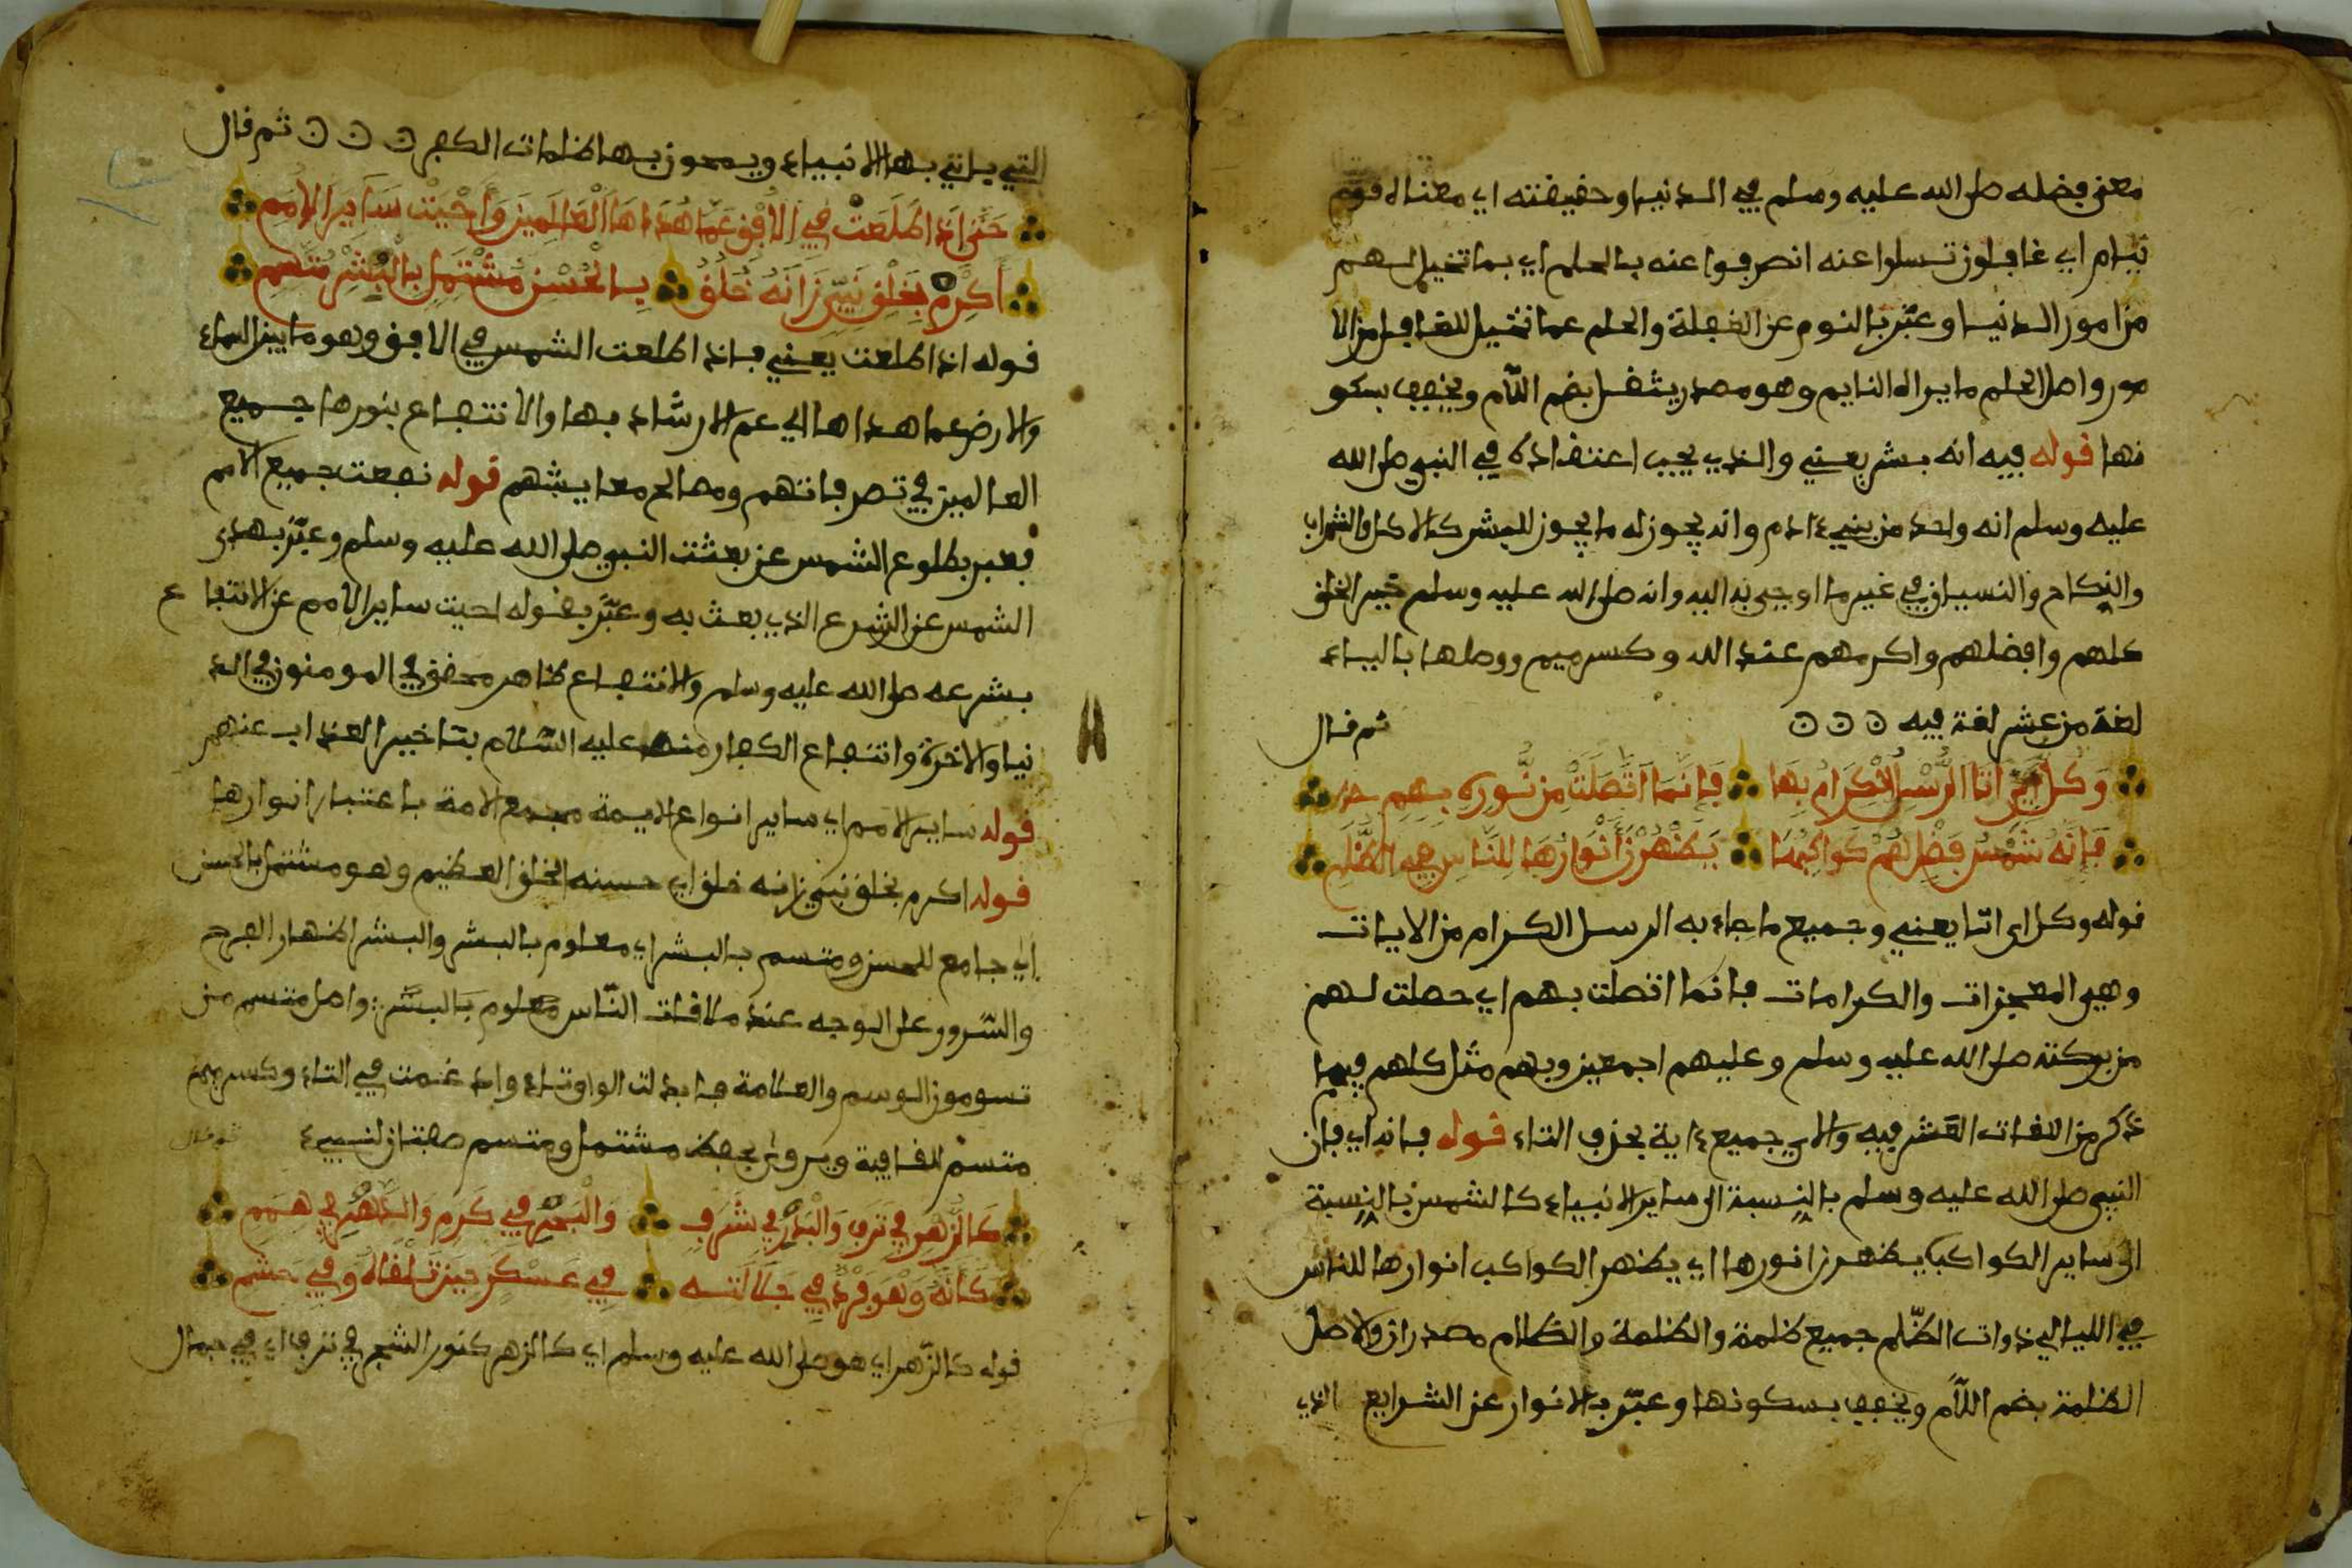 معنى فضله صلى الله عليه وسلم في الدنيا وحقيقته اي معناه قوم
نيام اي غافلون تسلوا عنه انصرفوا عنه بالحلم اي بما تخيل لهم
من امور الدنيا وعبّر بالنوم عن الغفلة والحلم عما تخيل للغافل من الا
مور واصل الحلم ما يراه النايم وهو مصدر يثقل بضم اللّام ويخفف بسكو
نها قوله فيه انه بشر يعني والذي يجب اعتقاده في النبي صلى الله
عليه وسلم انه واحد من بني ءادم وانه يجوز له ما يجوز للبشر كالاكل والشراب
والنكاح والنسيان في غير ما اوحي به اليه وانه صلى الله عليه وسلم خير الخلق
كلهم وافضلهم واكرمهم عند الله وكسر ميم ووصلها بالياء
لغة من عشر لغة فيه ن ن ن ثم قال
وَكُلُّ ءَايٍ اتَا الرُّسْلُ الْكِرَامُ بِهَا فَإِنَّمَا اتَّصَلَتْ مِن نُّورِهِ بِهِمِ
فَإِنَّهُ شَمْسُ فَضْلٍ هُمْ كَوَاكِبُهَا يُظْهِرْنَ أَنْوَارَهَا لِلنَّاسِ فِي الظُّلَمِ
قوله وكل اي اتا يعني وجميع ما جاء به الرسل الكرام من الايات
وهي المعجزات والكرامات فانما اتصلت بهم اي حصلت لهم
من بركته صلى الله عليه وسلم وعليهم اجمعين وبهم مثل كلهم فيما
ذكر من اللغات العشر فيه والاي جميع ءاية بحذف التاء قوله فانه اي فان
النبي صلى الله عليه وسلم بالنسبة الى ساير الانبياء كالشمس بالنسبة
الى ساير الكواكب يظهرن انورها اي يظهر الكواكب انوارها للناس
في الليالي ذوات الظّلم جميع ظلمة والظلمة والظلام مصدران والاصل
الظلمة بضم اللّام ويخفف بسكونها وعبّر بالانوار عن الشرايع الذي
التي ياتي بها الانبياء ويمحون بها ظلمات الكفر ن ن ن ثم قال
حَتَّى اذَا اطَلَعَتْ فِي الاُفْقِ عَمَّا هُدَاهَا الْعَالَمِينَ وَأَحْيَتْ سَايِرَ الاُمَمِ
أَكْرِمْ بِخَلْقِ نَبِيٍّ زَانَهُ خُلُقٌ بِالْحُسْنِ مُشْتَمِلٍ بِالْبِشْرِ مُتَّسِمِ
قوله اذا اطلعت يعني فاذا اطلعت الشمس في الافق وهو ما بين السماء
والارض عما هداها اي عم الارشاد بها والانتفاع بنورها جميع
العالمين في تصرفاتهم ومصالح معايشهم قوله نفعت جميع الامم
فعبر بطلوع الشمس عن بعثت النبي صلى الله عليه وسلم وعبّر بهدى
الشمس عن الشرع الذي بعث به وعبّر بقوله احيت ساير الامم عن الانتفا ع
بشرعه صلى الله عليه وسلم والانتفاع ظاهر محقق في المومنون في الد
نيا والاخرة وانتفاع الكفار منه عليه السّلام بتاخير العذاب عنهم
قوله ساير الامم اي ساير انواع الايمة مجمع الامة باعتبار انوارها
قوله اكرم بخلق نبي زانه خلق اي حسنه الخلق العظيم وهو مشتمل بالحسن
اي جامع للحسن ومتسم بالبشر اي معلوم بالبشر والبشر اظهار الفرح
والسّرور على الوجه عند ملاقات النّاس معلوم بالبشر واصل متسم من
تسوم من الوسم والعلامة فابدلت الواو تاء وادغمت في التاء وكسر ميم
متسم للقافية ويروى بحفظ مشتمل ومتسم صفتان لنبيء ثم قال
كَالزَّهْرِ فِي تَرَفٍ وَالْبَدْرِ فِي شَرَفٍ وَالْبَحْرِ فِي كَرَمٍ وَالدَّهْرِ فِي هِمَمِ
كَأَنَّهُ وَهْوَ فَرْدٌ فِي جَلَالَتِهِ فِي عَسْكَرٍ حِينَ تَلْقَاهُ وَفِي حَشَمِ
قوله كالزّهر اي هو صلى الله عليه وسلم اي كالزهر كنور الشجر في ترف اي في جمال